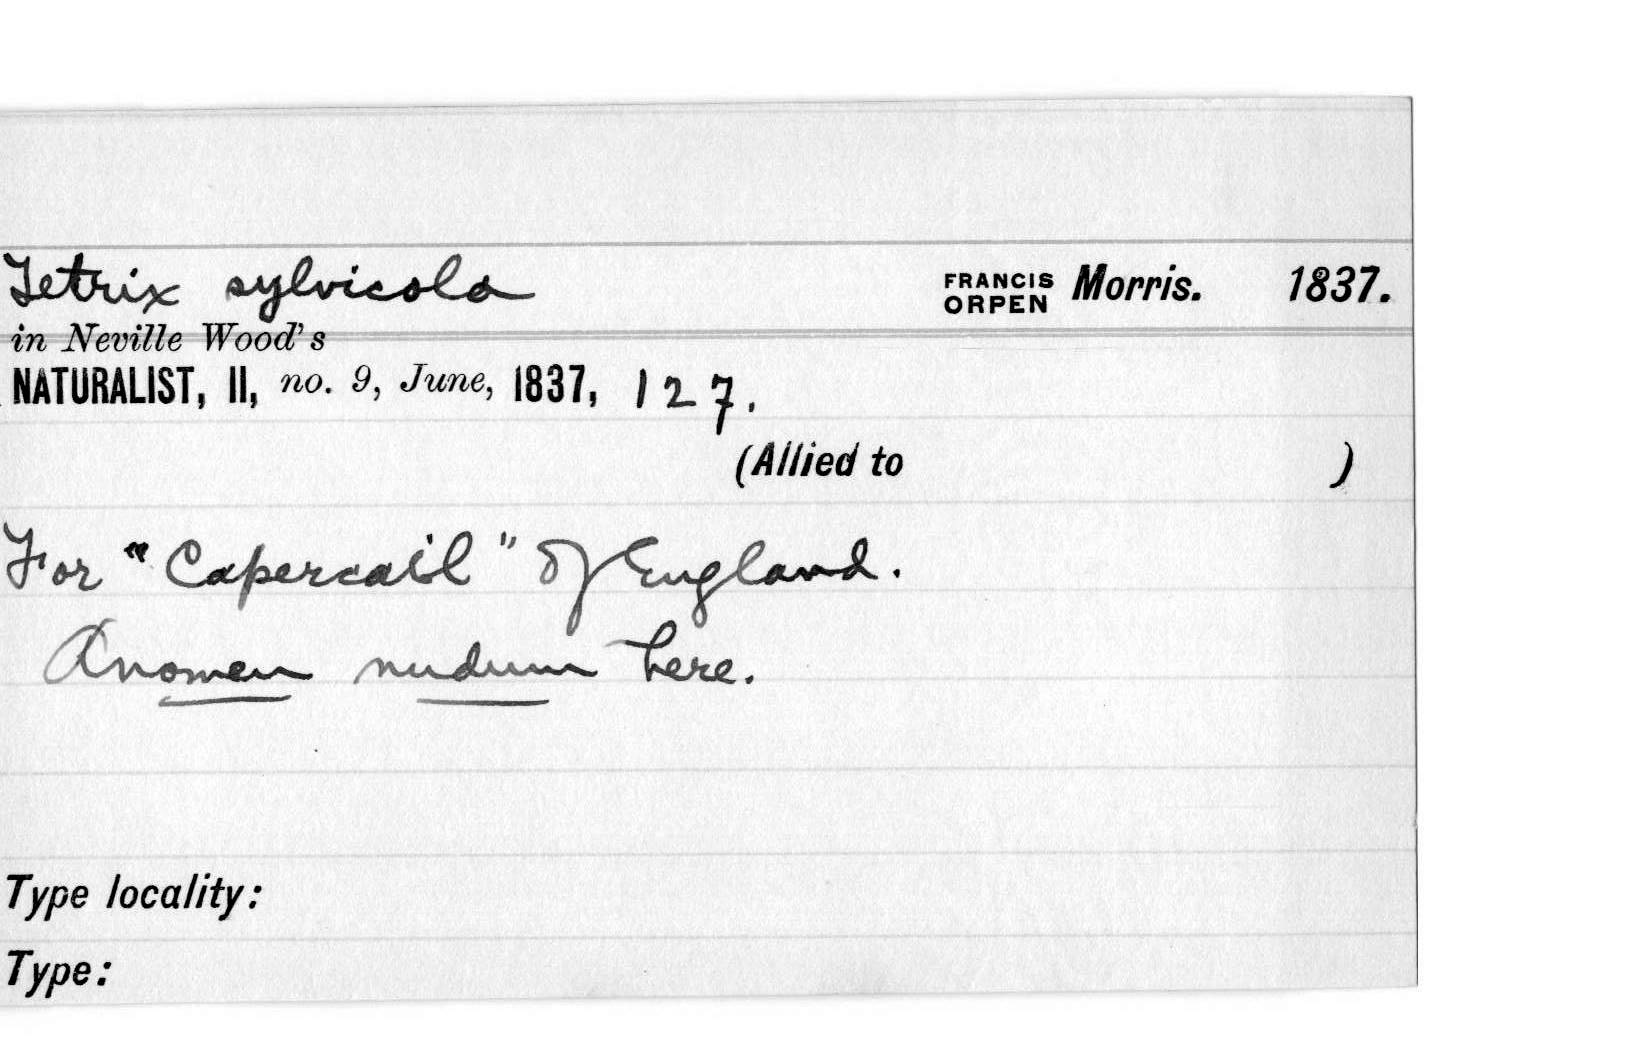 Tetrix sylvicola FRANCIS ORPEN Morris. 1837.
in Neville Wood's
NATURALIST, II, no. 9, June, 1837, 127.
(Allied to )
For "Capercail" of England.
A nomen nudum here.
Type locality:
Type: